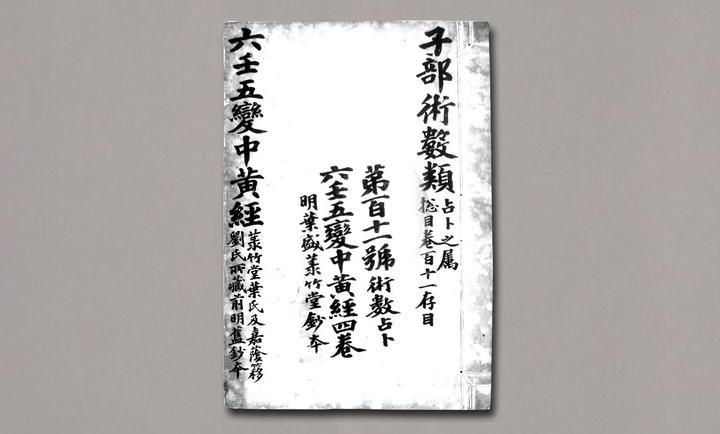 子部術數類
占卜之属
總目卷百十一存目
苐百十一號術數占卜
六壬五變中黃經四卷
明葉盛菉竹堂鈔本
六壬五變中黃經
菉竹堂葉氏及嘉蔭簃
劉氏所藏前明舊鈔本